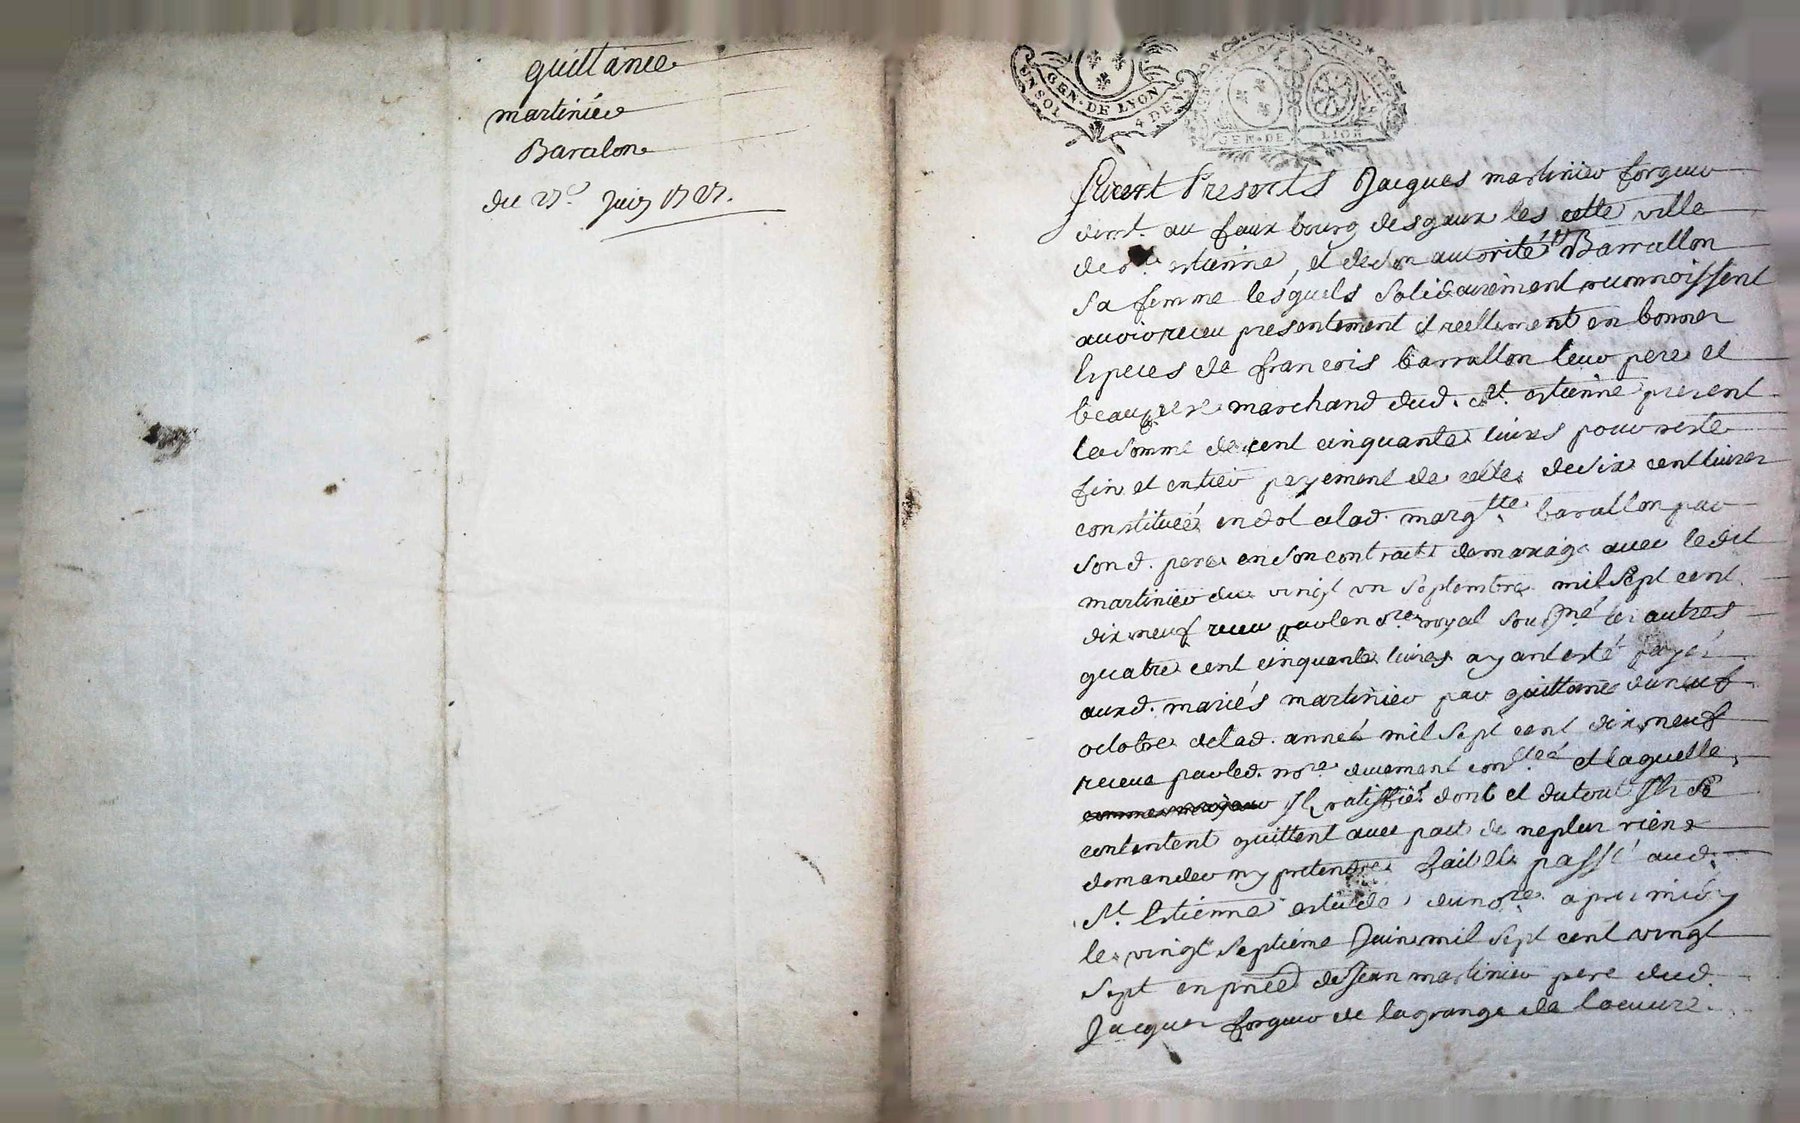 quittance
martinier
Baralon
du 27e Juin 1727.
GEN. DE LYON
UN SOL 4 DEN
GEN. DE LION
furent Presents Jacques martinier forgeur
demt. au faux bourg desgaux les cette ville
de st. estienne, et de son authorité Barrallon
sa femme lesquels solidairement reconnoissent
avoir receu presentement et reellement en bonnes
especes de françois barrallon leur pere et
beaupere marchand dud. st. estienne present
la somme de cent cinquante livres pour reste
fin et entier payement de celle de six cent livres
constituée en dot a lad. margtte. barallon par
son d. pere en son contract de mariage avec le dit
martinier du vingt un septembre mil sept cent
dix neuf receu par le nre. royal soussné les autres
quatre cent cinquante livres ayant esté payés
aux d. mariés martinier par quittance du neuf
octobre de lad. année mil sept cent dix neuf
receue par led. nore. duement conllée et laquelle
Ils ratiffient dont et du tout Ils se
contentent quittent avec pact de ne plus rien
demander ny pretendre fait et passé aud.
St. Estienne estude du nore. apres midy
le vingt septième Juin mil sept cent vingt
sept en pnce de Jean martinier pere dud.
Jacques forgeur de lagrange de loeuvre.